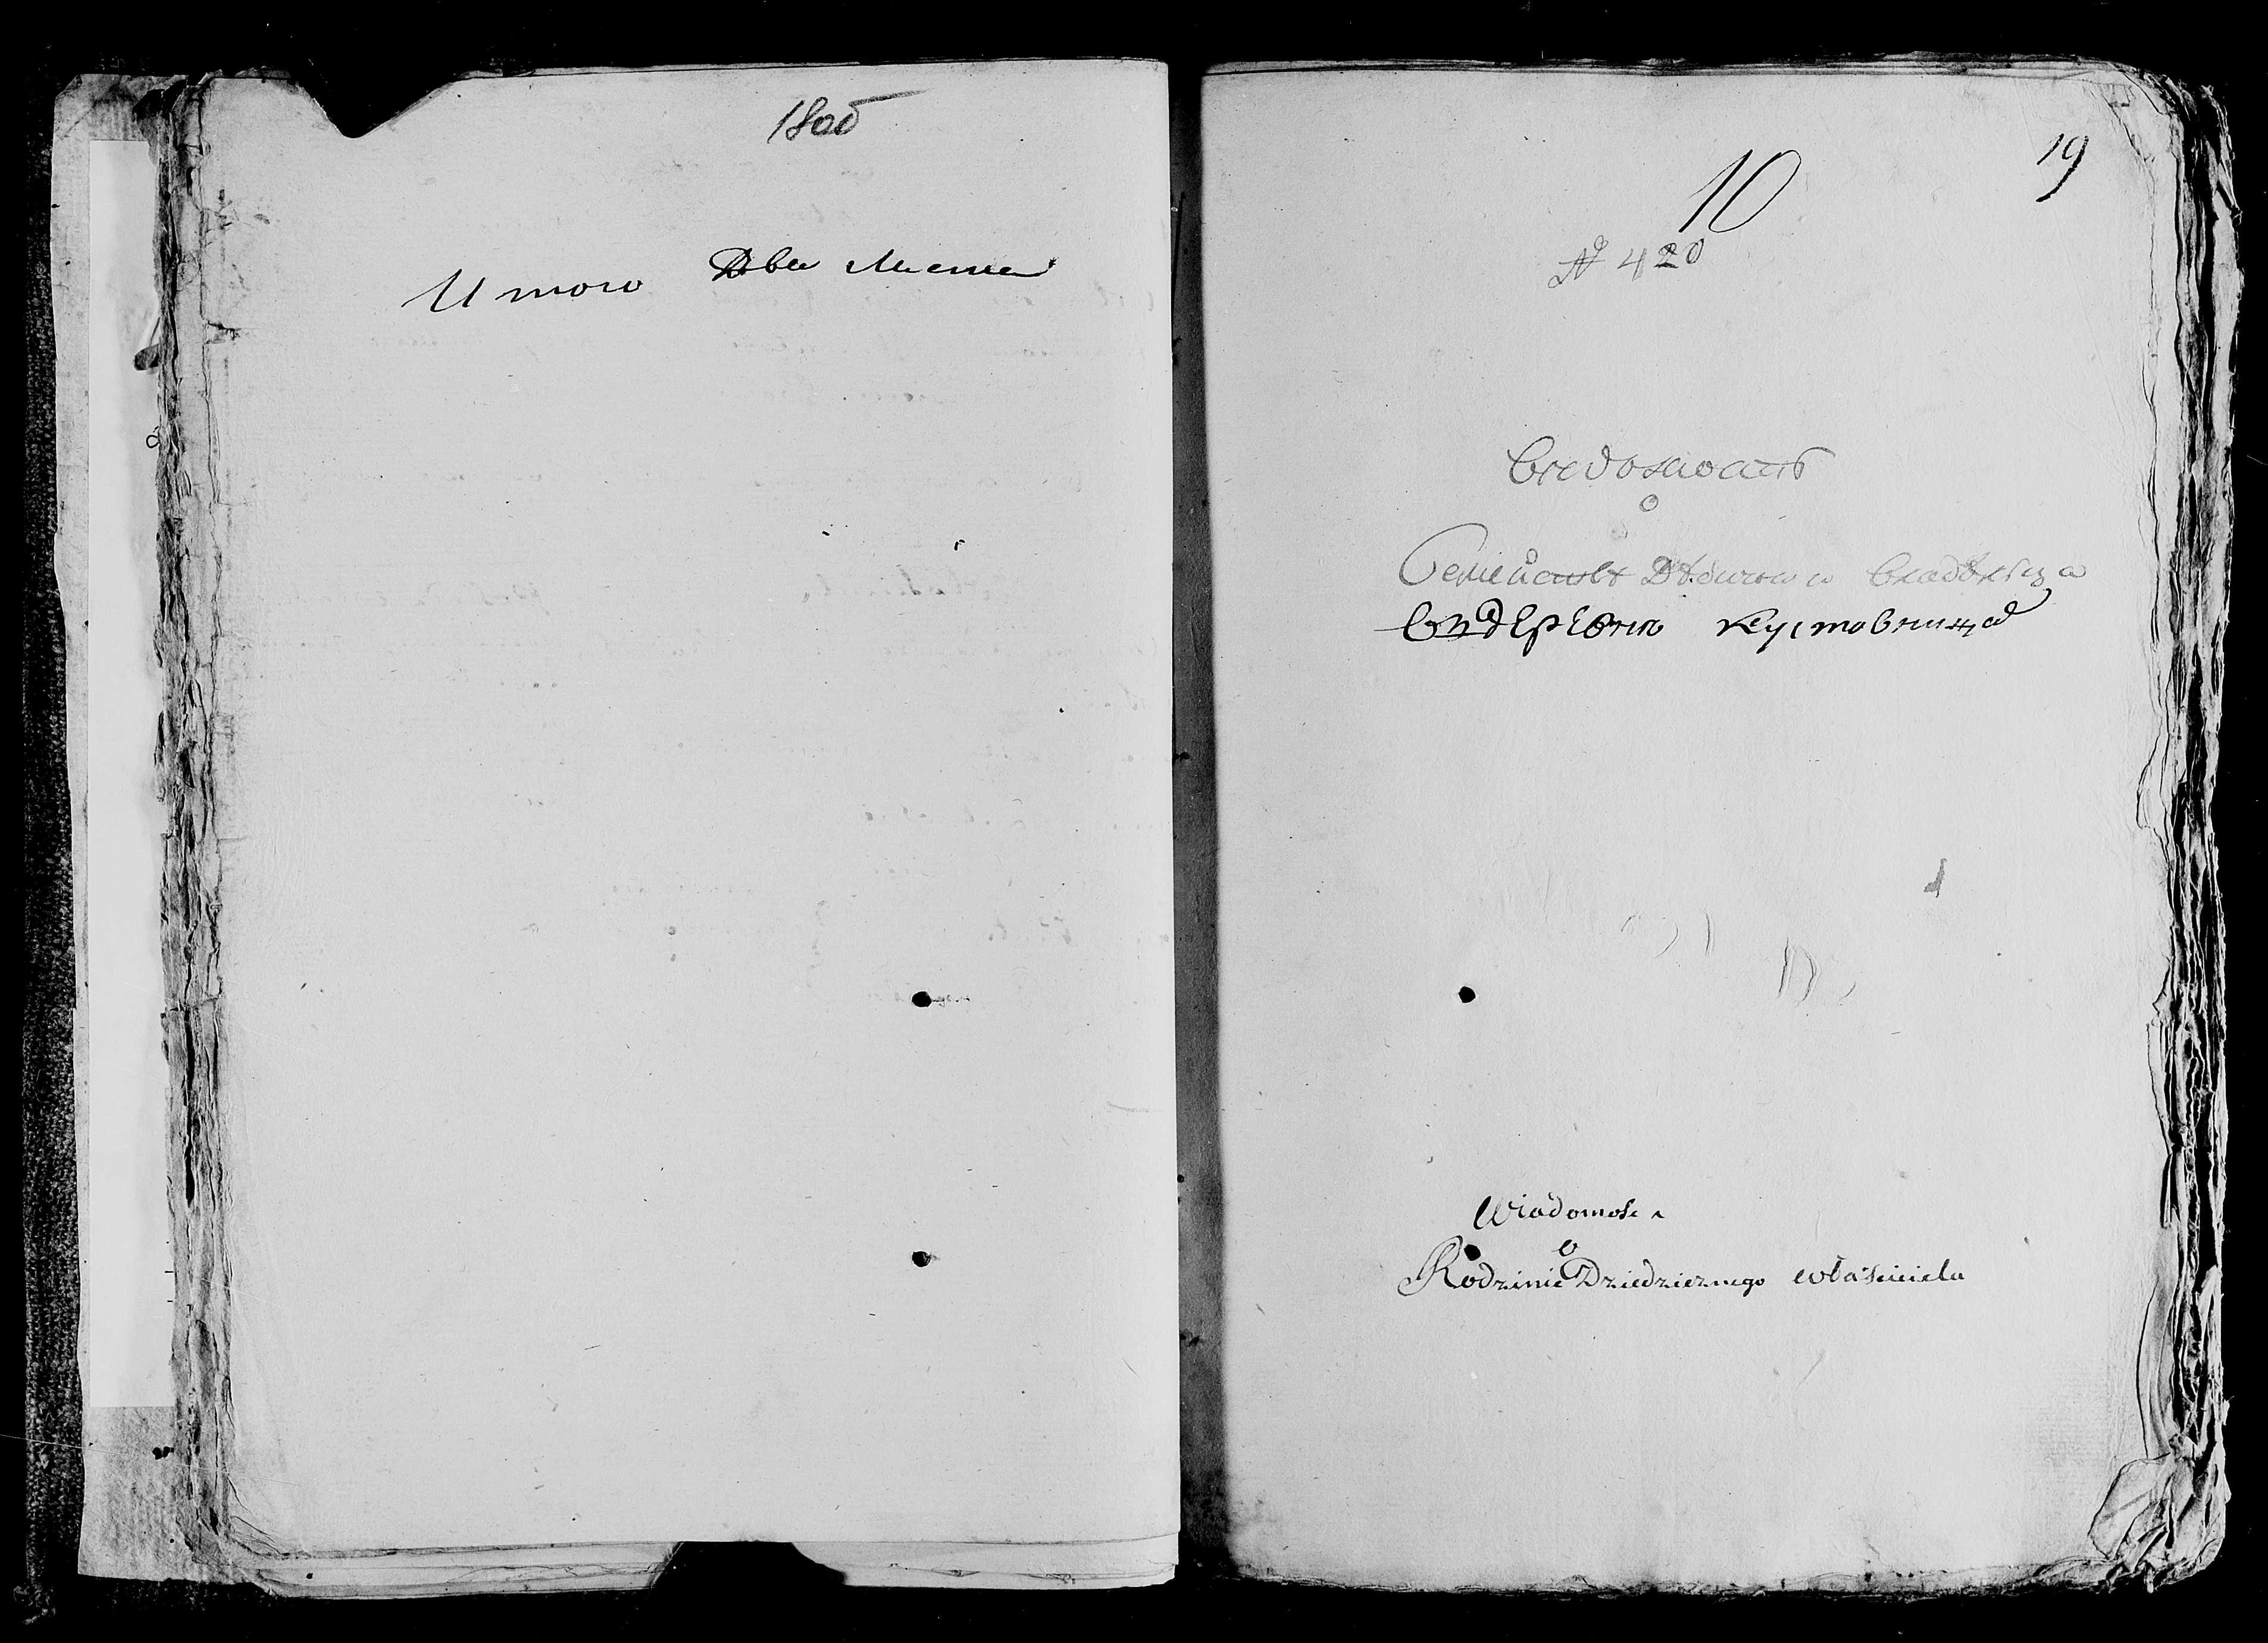 1805
Итого Два листа
19
10
№ 420
Ведомость
о
Семействе Дедичного Владельца
Wiadomość
o
Rodzinie Dziedzicznego właściciela